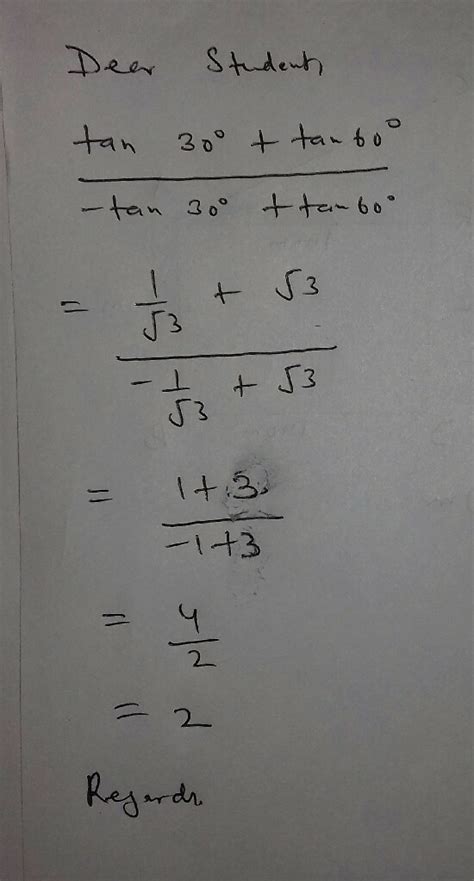 Dear Student,
tan 30° + tan 60°
-tan 30° + tan 60°
= 1/√3 + √3
-1/√3 + √3
= 1+3
-1+3
= 4/2
= 2
Regards